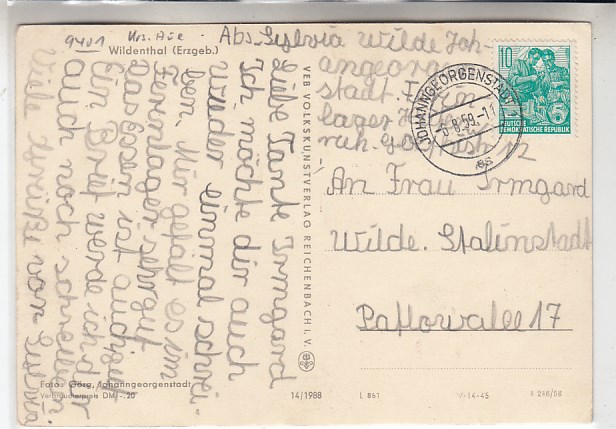 9401 Krs. Aue
Wildenthal (Erzgeb.)
Abs. Sylvia Wilde Joh-
angeorgen
stadt. Ferien
lager H
str. 12
Liebe Tante Irmgard
Ich möchte dir auch
wieder einmal schrei-
ben. Mir gefält es im
Ferienlager sehr gut
Das Essen ist auch gut
Ein Brief werde ich dir
auch noch schreiben
Viele Grüße von Sylvia
VEB VOLKSKUNSTVERLAG REICHENBACH i. V.
10
DEUTSCHE
DEMOKRATISCHE REPUBLIK
JOHANNGEORGENSTADT 1
-6.8.59.-11
An Frau Irmgard
Wilde. Stalinstadt
Pawlowallee 17
Foto: Görg, Johanngeorgenstadt
Verbraucherpreis DM -.20
14/1988 L 861 V-14-45 A 286/58